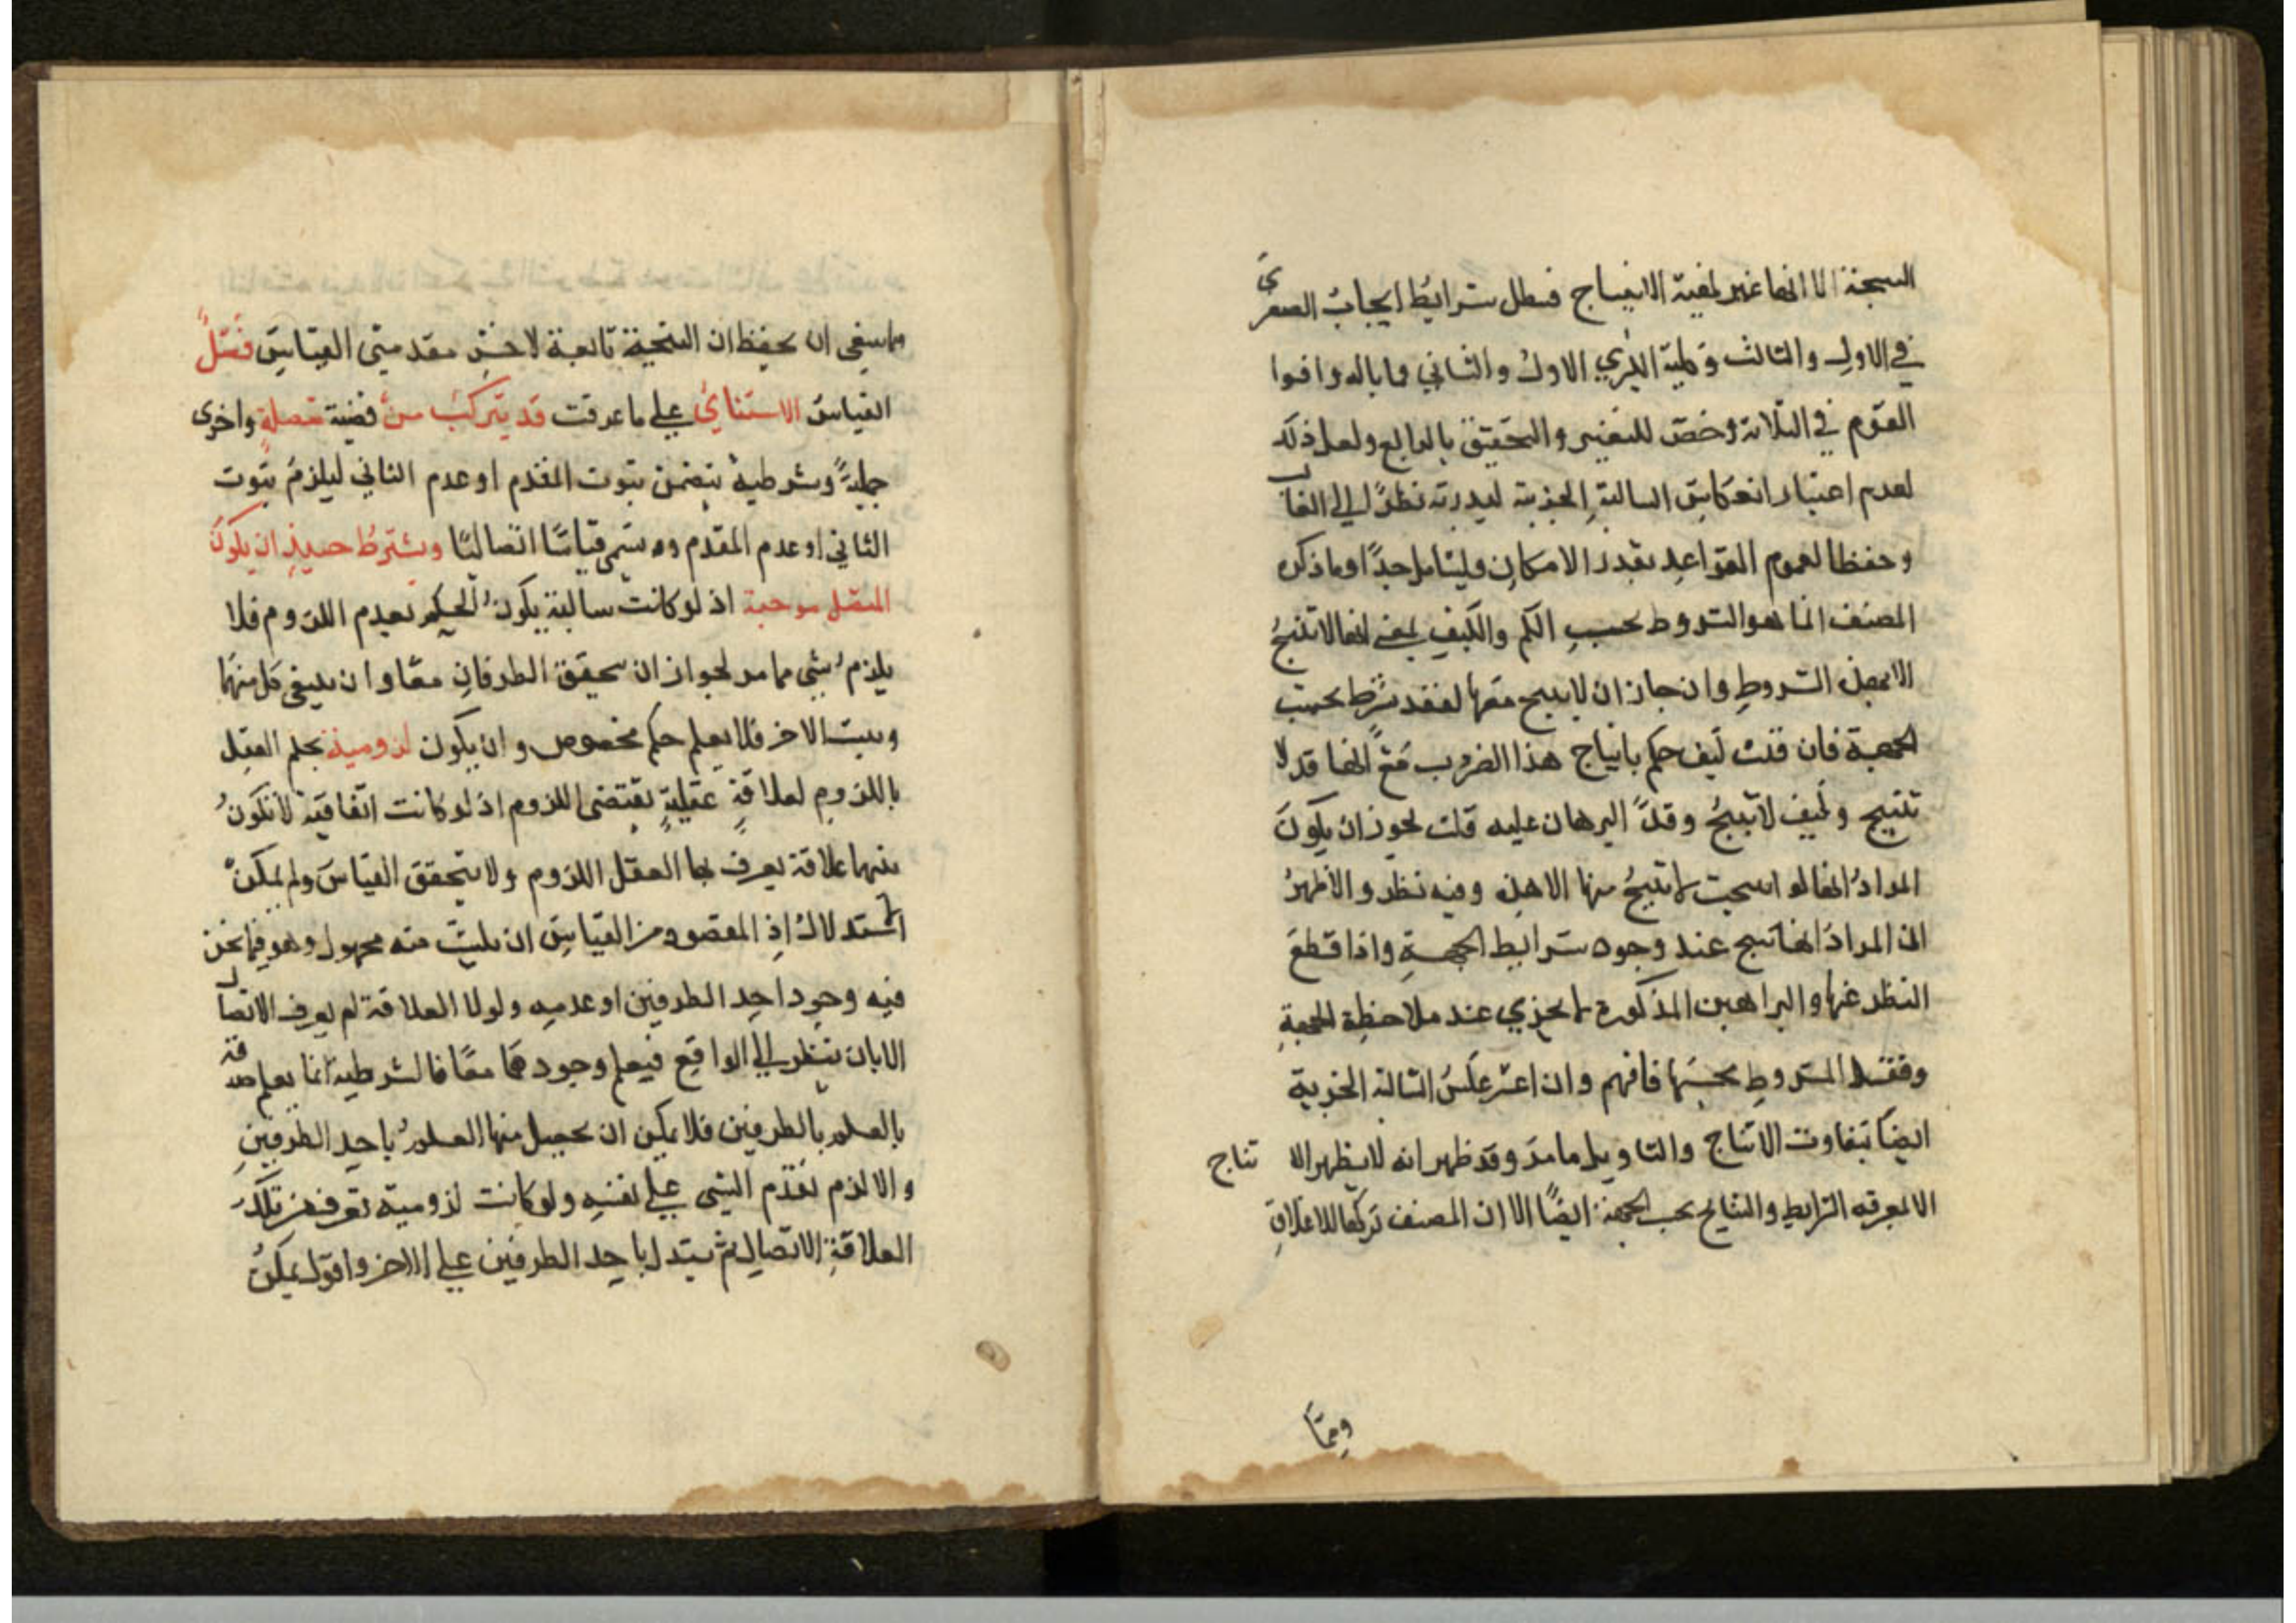 النتيجة الا انها غير لمية الانتاج فبطل شرايط ايجاب الصغرى
في الاول والثالث وكلية الكبري الاول والثاني وما باله وافوا
القوم في الثلاثة وخص للتغيير والتحقيق بالرابع ولعل ذلك
لعدم اعتبار انعكاس السالبة الجزئية لندرته نظرا الي الغالب
وحفظا لعموم القواعد بقدر الامكان وليتامل جدا وما ذكره
المصنف انما هو الشروط بحسب الكم والكيف يعني انها لا تنتج
الا بهذه الشروط وان جاز ان لا ينتج معها لفقد شرط بحسب
الجهة فان قلت كيف حكم بانتاج هذا الضروب مع انها قد لا
تنتج وكيف لا تنتج وقد البرهان عليه قلت يجوز ان يكون
المراد انها لو انتجت لا تنتج منها الا هذه وفيه نظر والاظهر
ان المراد انها تنتج عند وجود شرايط الجهة واذا قطع
النظر عنها والبراهين المذكورة لا تجري عند ملاحظة الجهة
وفقد الشروط بحسبها فافهم وان اعتبر عكس السالبة الجزئية
ايضا تتفاوت الانتاج والتاويل ما مر وقد ظهر انه لا يظهر الا نتاج
الا لمعرفة الشرايط والنتايج بحسب الجهة ايضا الا ان المصنف تركها للاغلاق
ومما
مما ينبغي ان يحفظ ان النتيجة تابعة لاخس مقدمتي القياس فصل
القياس الاستثنائي علي ما عرفت قد يتركب من قضية متصلة واخرى
حملية وشرطية يتضمن ثبوت المقدم او عدم التاني ليلزم ثبوت
الثاني او عدم المقدم وه يسمى قياسا اتصاليا ويشترط حينئذ ان يكون
المتصل موجبة اذ لو كانت سالبة يكون الحكم بعدم اللزوم فلا
يلزم شي مما مر لجواز ان يتحقق الطرفان معا وان ينتفي كل منهما
ويثبت الاخر فلا يعلم حكم مخصوص وان يكون لزومية يحكم العقل
باللزوم لعلاقة عقلية يقتضى اللزوم اذ لو كانت اتفاقية لا تكون
بينهما علاقة يعرف بها العقل اللزوم ولا يتحقق القياس ولم يمكن
الاستدلال اذ المقصود من القياس ان يثبت منه مجهول وهو فيما نحن
فيه وجود احد الطرفين او عدمه ولولا العلاقة لم يعرف الاتصال
الا بان ينظر الي الواقع فيعلم وجودهما معا فالشرطية انما يعلم صدقه
بالعلم بالطرفين فلا يمكن ان يحصل منها العلم باحد الطرفين
والا لزم تقدم الشي علي نفسه ولو كانت لزومية تعرف من تلك
العلاقة الاتصال ثم يستدل باحد الطرفين علي الاخر واقول يمكن